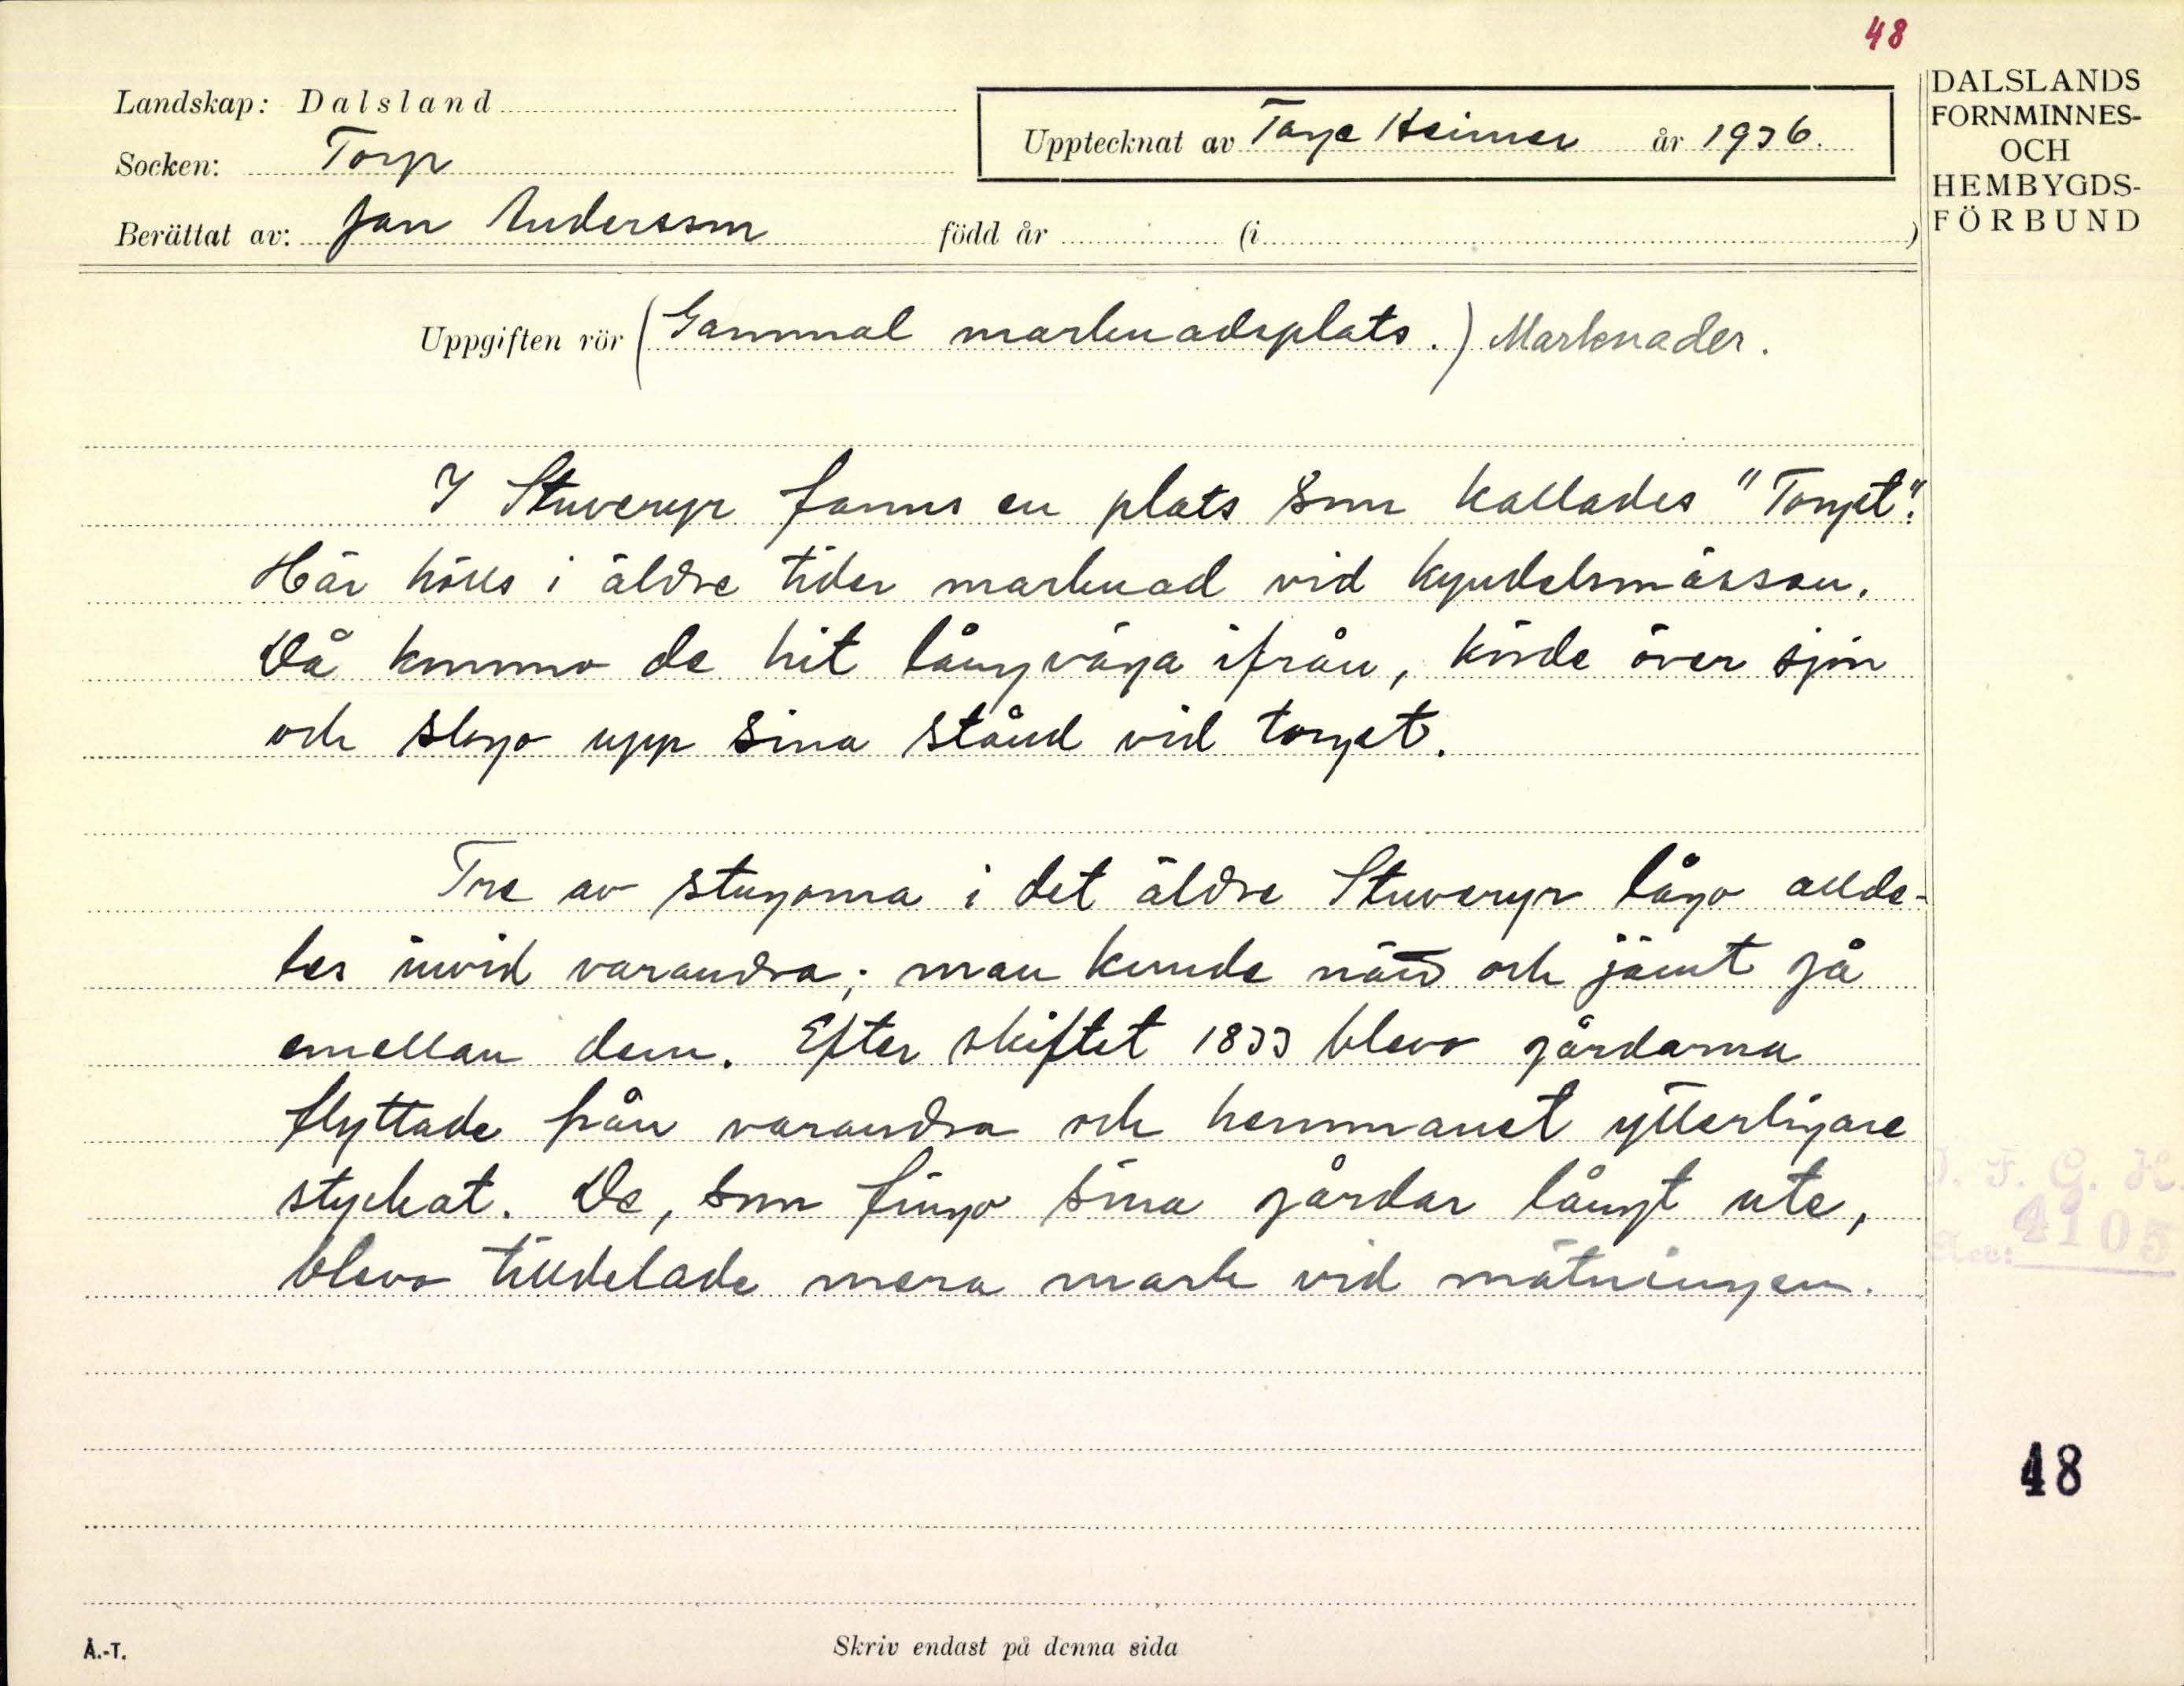 48
Landskap: Dalsland
Upptecknat av Tage Heimer år 1936.
Socken: Torp
Berättat av: Jan Andersson född år (i )
DALSLANDS
FORNMINNES-
OCH
HEMBYGDS-
FÖRBUND
Uppgiften rör (Gammal marknadsplats.) Marknader.
I Stuveryr fanns en plats som kallades "Torget".
Här hölls i äldre tider marknad vid kyndelsmässan.
Då kommo de hit långväga ifrån, körde över sjön
och slogo upp sina stånd vid torget.
Tre av stugorna i det äldre Stuveryr lågo allde-
les invid varandra; man kunde nätt och jämt gå
emellan dem. Efter skiftet 1833 blevo gårdarna
flyttade från varandra och hemmanet ytterligare
styckat. De, som fingo sina gårdar långt ute,
blevo tilldelade mera mark vid mätningen.
I. F. G. H.
Acc: 4105
48
Å.-T.
Skriv endast på denna sida